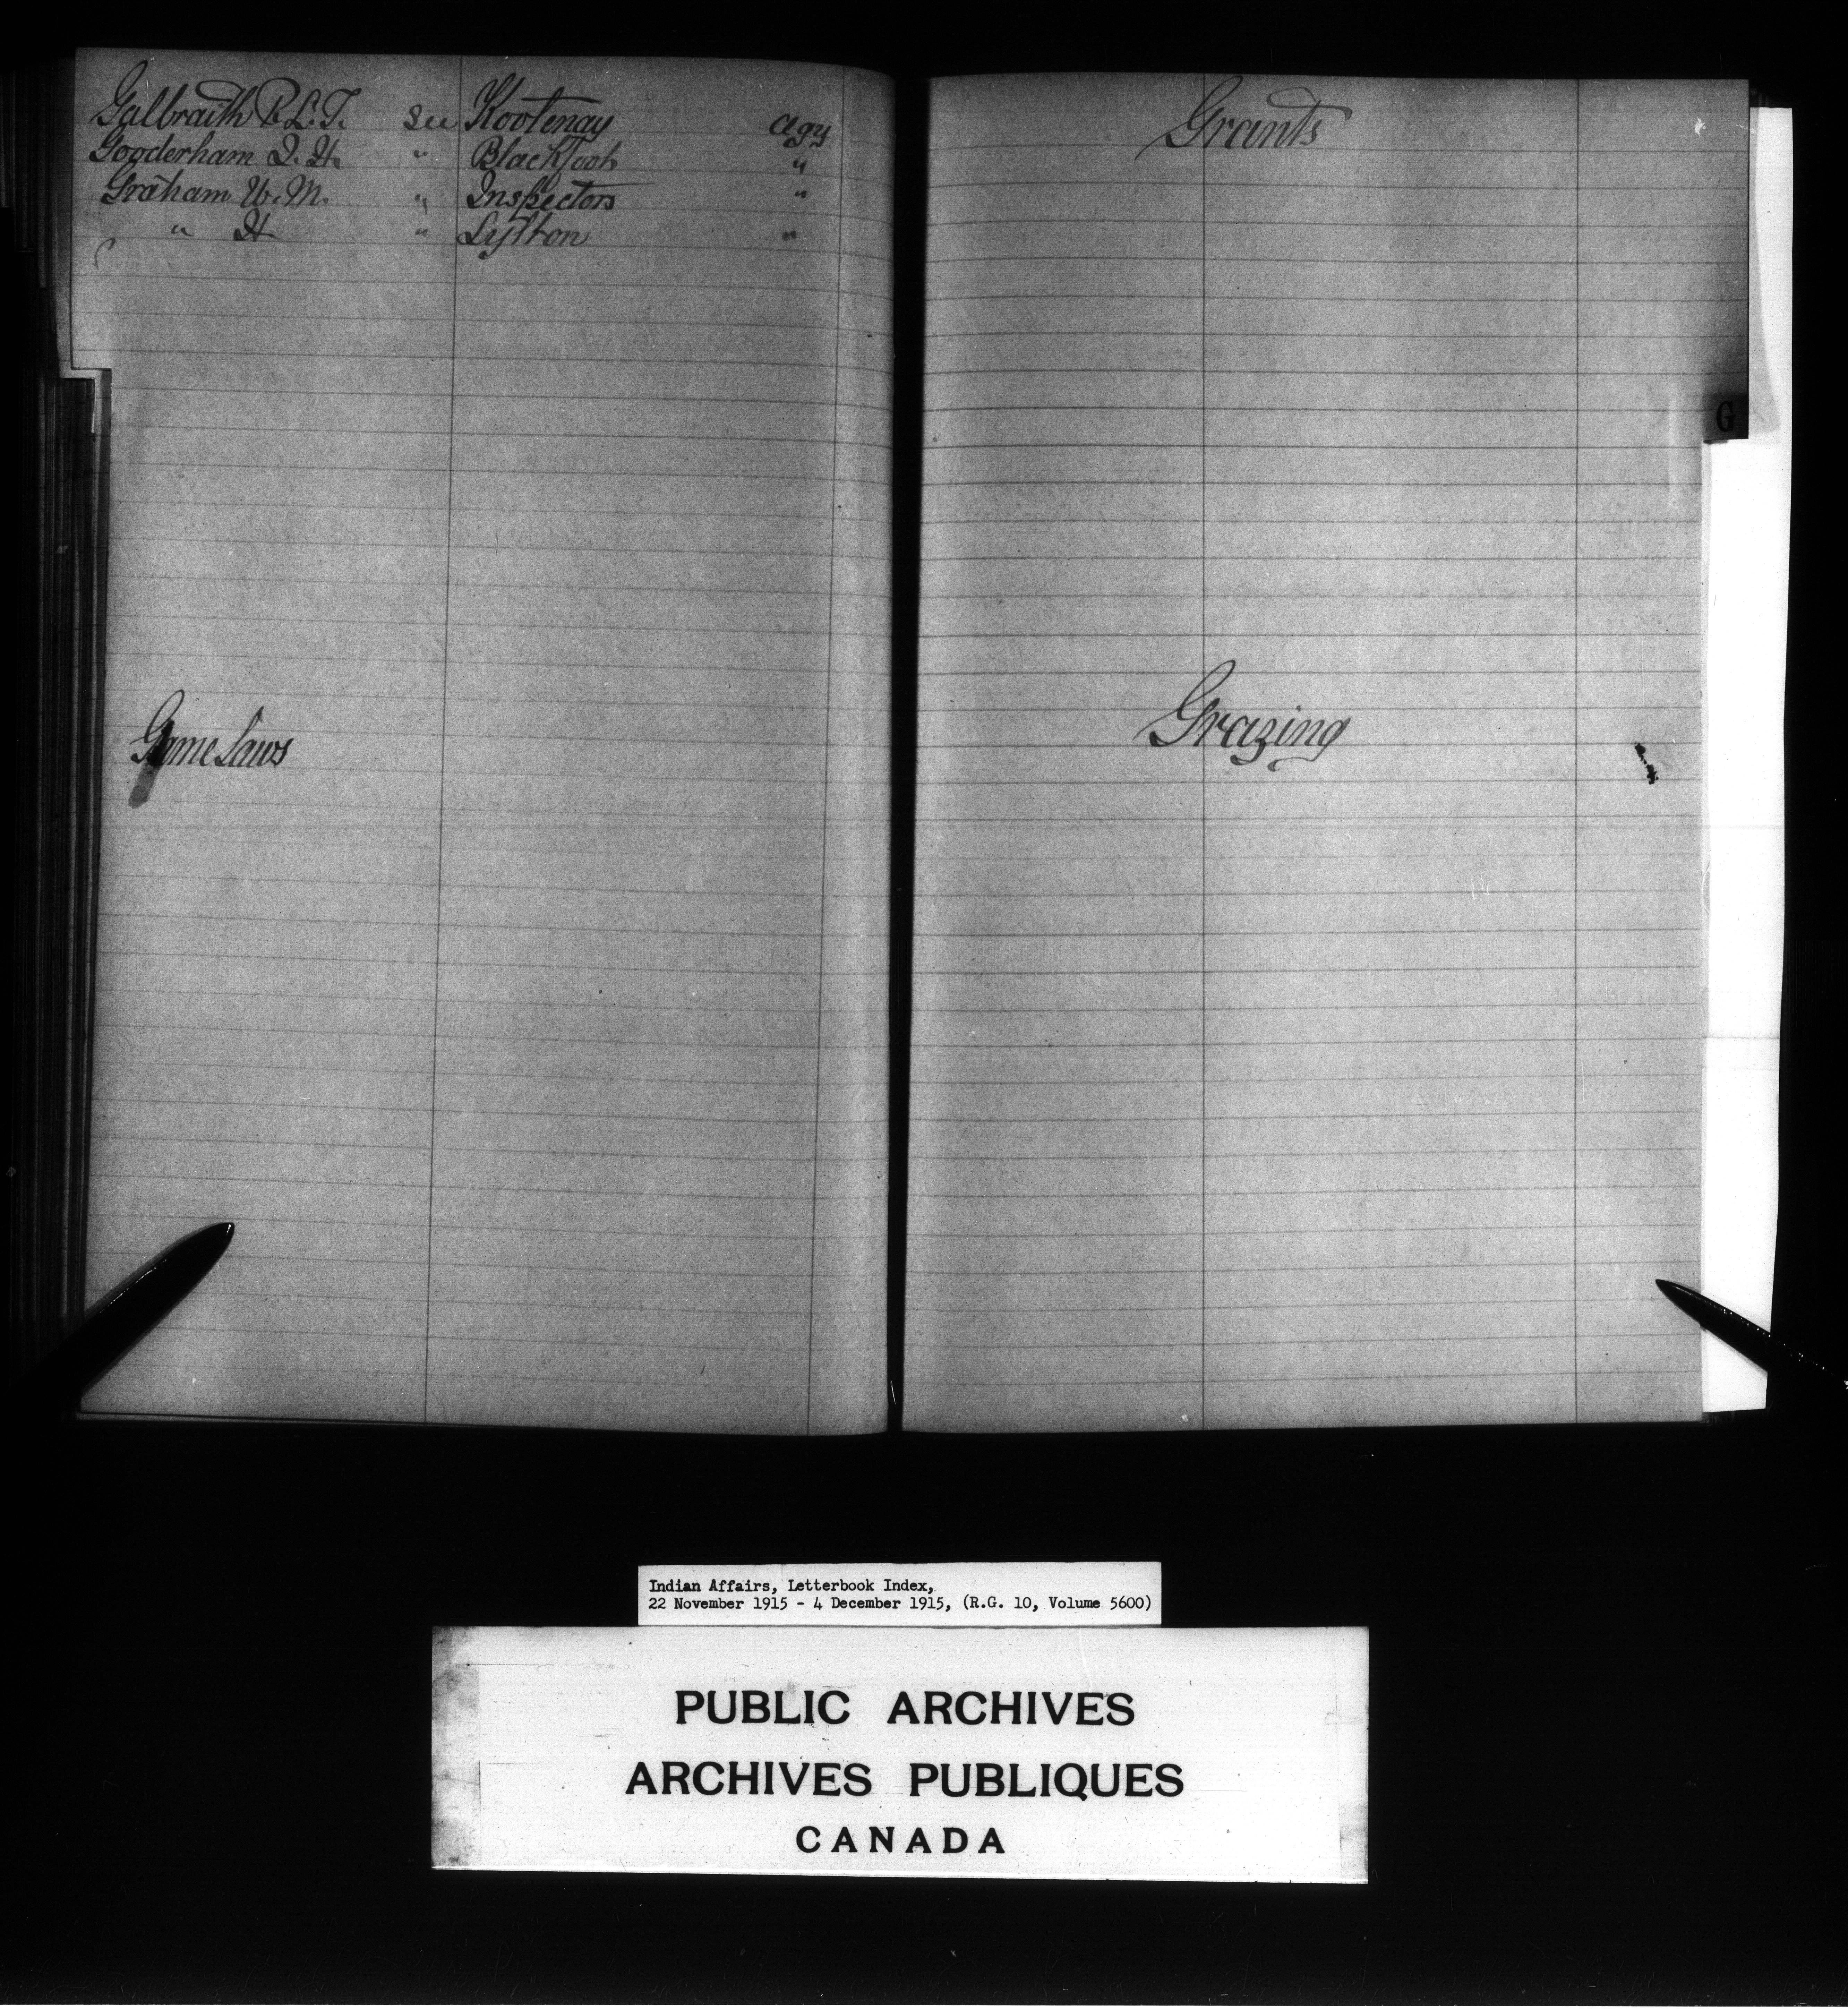 Galbraith R. L. T. See Kootenay Agy
Gooderham J. H. " Blackfoot "
Graham W. M. " Inspectors "
" H. " Lytton "
Game Laws
Grants
G
Grazing
Indian Affairs, Letterbook Index,
22 November 1915 - 4 December 1915, (R.G. 10, Volume 5600)
PUBLIC ARCHIVES
ARCHIVES PUBLIQUES
CANADA